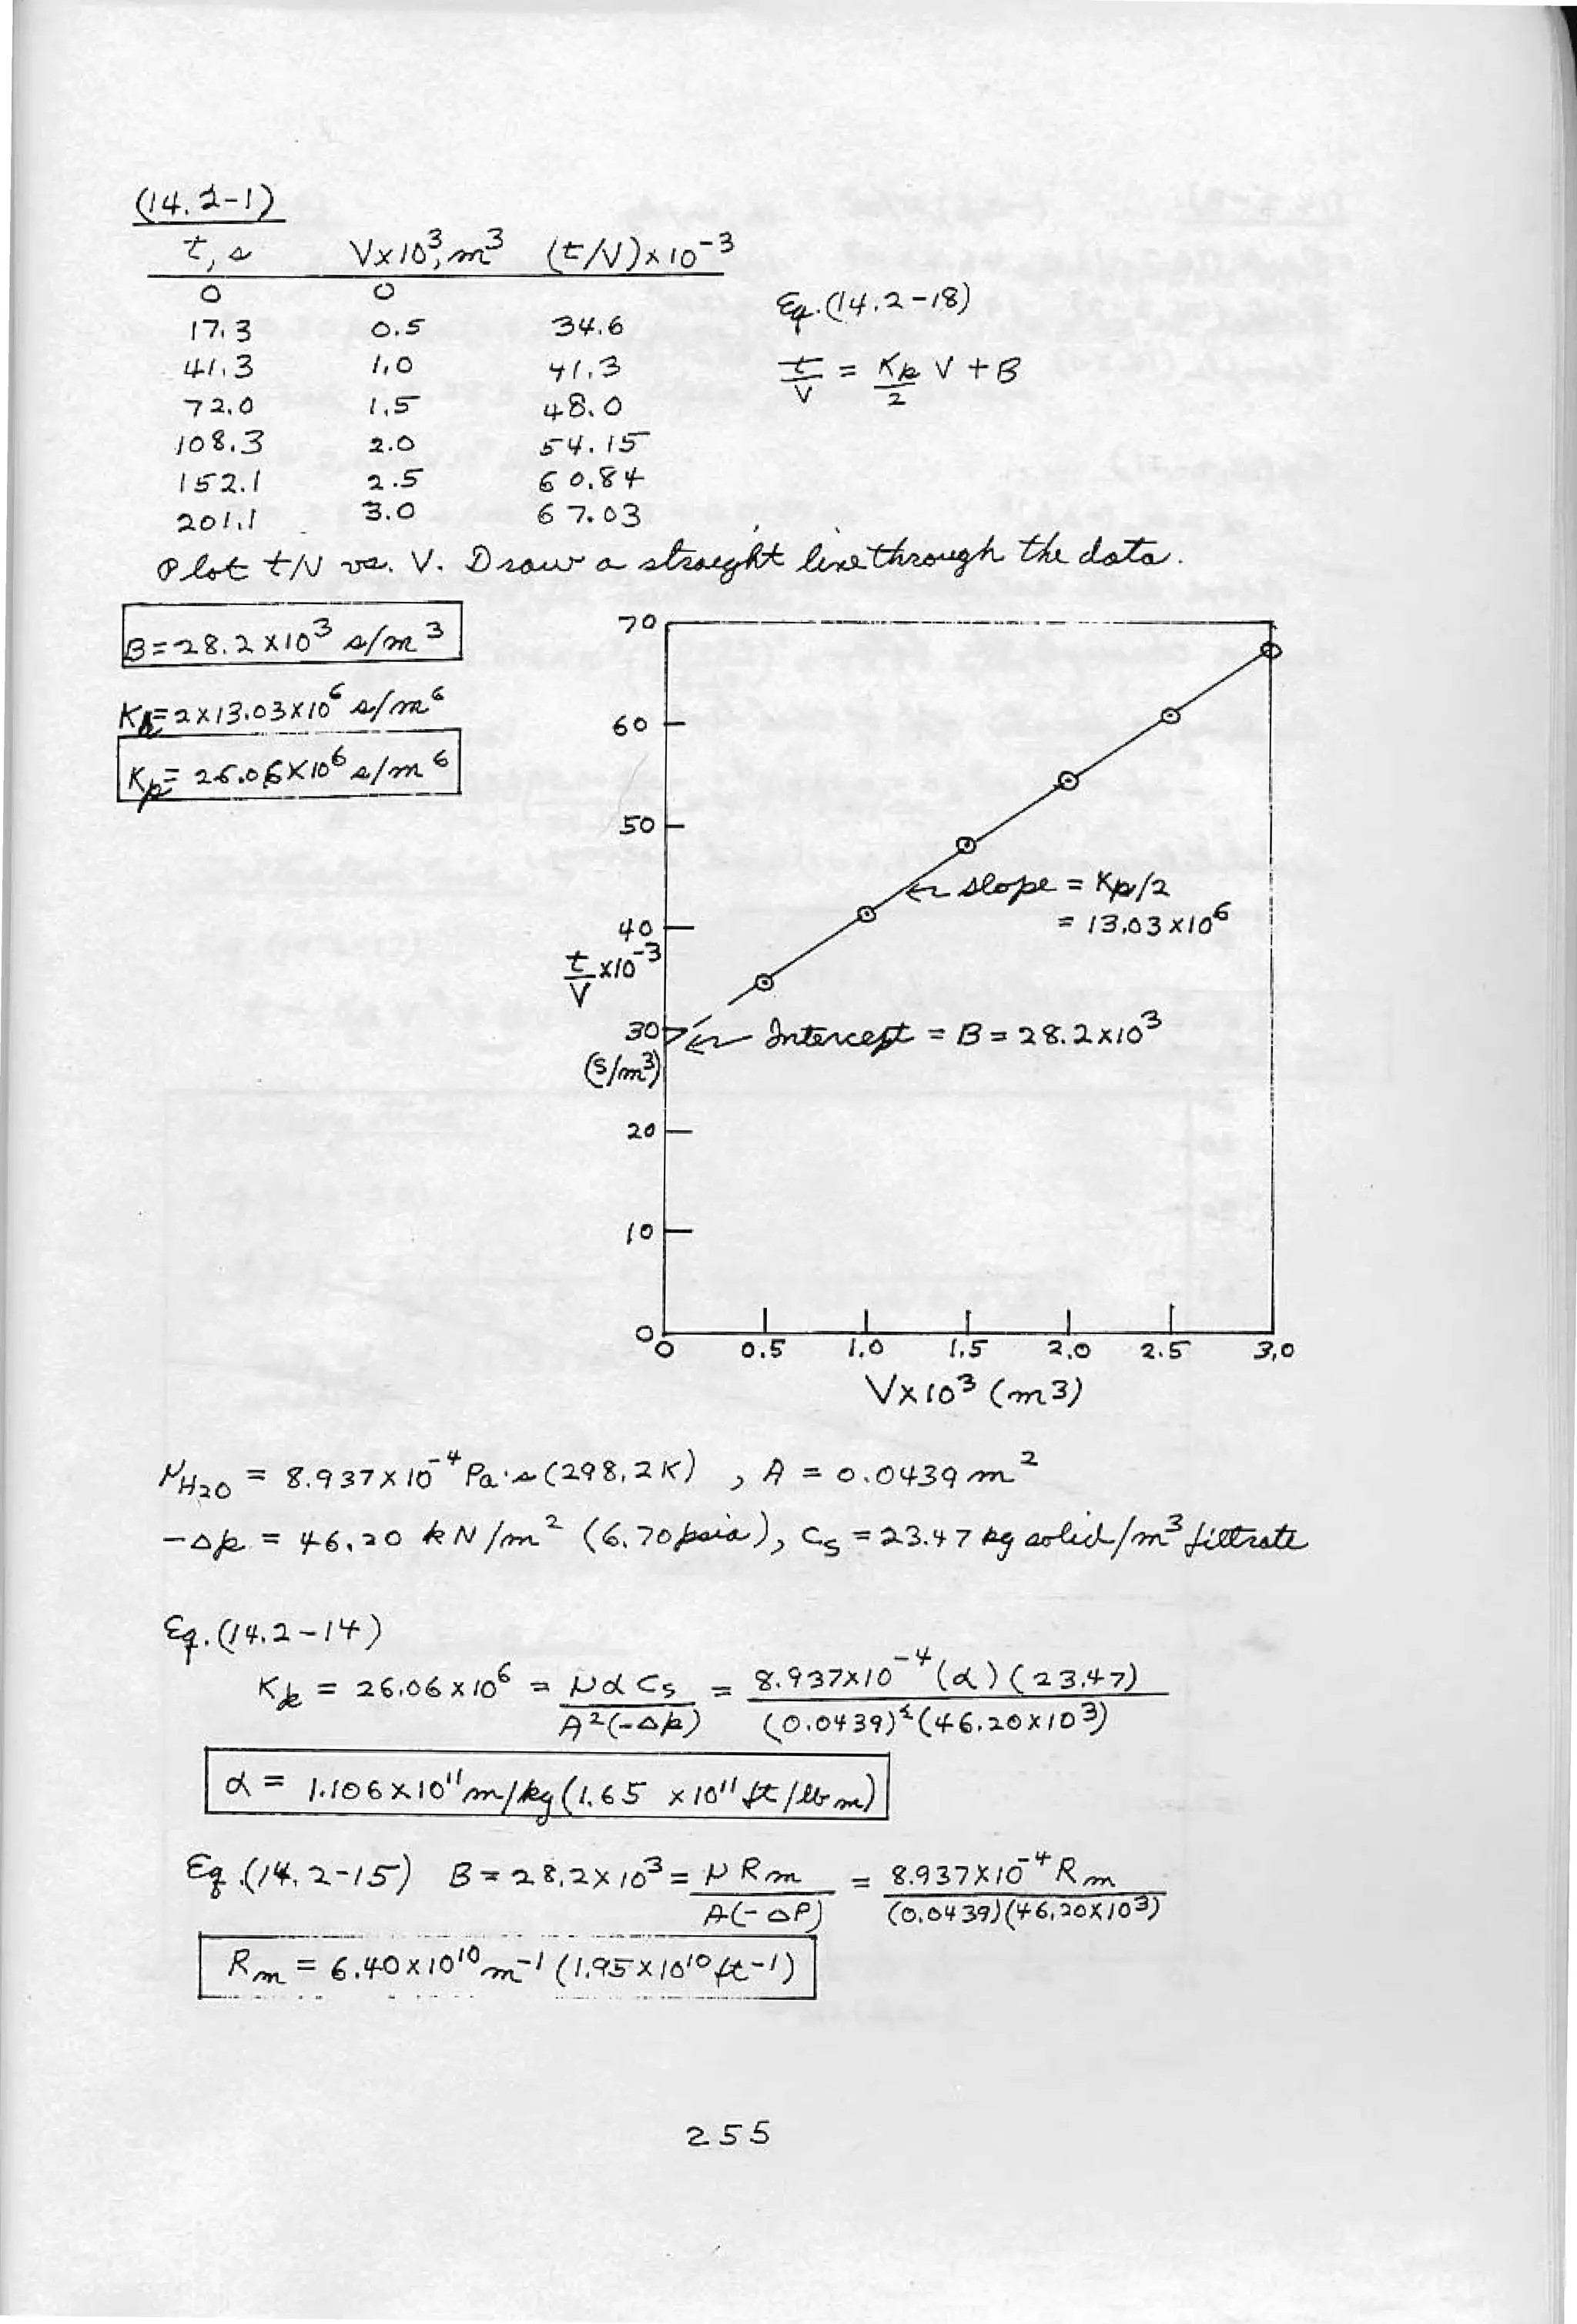 (14.2-1)
t, s V×10³, m³ (t/V)×10⁻³
0 0
17.3 0.5 34.6
41.3 1.0 41.3
72.0 1.5 48.0
108.3 2.0 54.15
152.1 2.5 60.84
201.1 3.0 67.03
Eq. (14.2-18)
t/V = Kp/2 V + B
Plot t/V vs. V. Draw a straight line through the data.
B = 28.2 ×10³ s/m³
Kp = 2×13.03×10⁶ s/m⁶
Kp = 26.06×10⁶ s/m⁶
70
60
50
slope = Kp/2
= 13.03×10⁶
40
t/V ×10⁻³
30
Intercept = B = 28.2×10³
(s/m³)
20
10
0
0 0.5 1.0 1.5 2.0 2.5 3.0
V×10³ (m3)
μH₂O = 8.937×10⁻⁴ Pa·s (298.2 K) , A = 0.0439 m²
-Δp = 46.20 kN/m² (6.70 psia), cs = 23.47 kg solid/m³ filtrate
Eq. (14.2-14)
Kp = 26.06×10⁶ = μαcs / A²(-Δp) = 8.937×10⁻⁴(α)(23.47) / (0.0439)²(46.20×10³)
α = 1.106×10¹¹ m/kg (1.65 ×10¹¹ ft/lbm)
Eq. (14.2-15) B = 28.2×10³ = μRm / A(-ΔP) = 8.937×10⁻⁴Rm / (0.0439)(46.20×10³)
Rm = 6.40×10¹⁰ m⁻¹ (1.95×10¹⁰ ft-1)
255